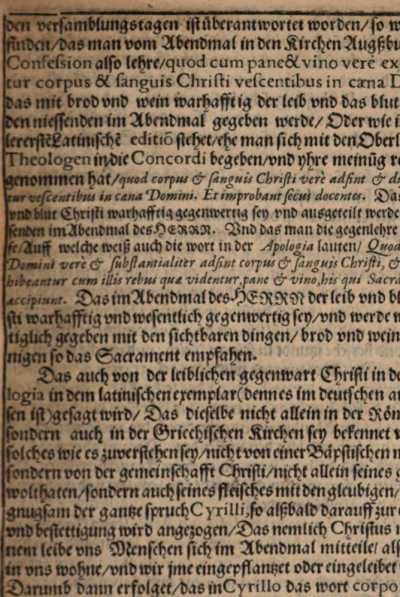 den versamblungstagen ist überantwortet worden/so w
finden/das man vom Abendmal in den Kirchen Augßbu
Confession also lehre/quod cum pane & vino verè ex
tur corpus & sanguis Christi vescentibus in cæna D
das mit brod vnd wein warhafftig der leib vnd das blut
den niessenden im Abendmal gegeben werde/Oder wie i
lererstē Latinischē editiō stehet/ehe man sich mit den Oberl
Theologen in die Concordi begeben/vnd yhre meinūg r
genommen hat/quod corpus & sanguis Christi verè adsint & di
tur vescentibus in cæna Domini. Et improbant secùs docentes. Da
vnd blut Christi warhafftig gegenwertig sey vnd ausgeteilt werde
senden im Abendmal des HERRN. Vnd das man die gegenlehre
fe/Auff welche weiß auch die wort in der Apologia lauten/Quod
Domini verè & substantialiter adsint corpus & sanguis Christi, &
hibeantur cum illis rebus quæ videntur, pane & vino, his qui Sacra
accipiunt. Das im Abendmal des HERRN der leib vnd bl
sti warhafftig vnd wesentlich gegenwertig sey/vnd werde w
tiglich gegeben mit den sichtbaren dingen/brod vnd wein
nigen so das Sacrament empfahen.
Das auch von der leiblichen gegenwart Christi in de
logia in dem latinischen exemplar (denn es im deutschen a
sen ist) gesagt wird/Das dieselbe nicht allein in der Röm
sondern auch in der Griechischen Kirchen sey bekennet w
solches wie es zuverstehen sey/nicht von einer Bäpstischen m
sondern von der gemeinschafft Christi/nicht allein seines g
wolthaten/sondern auch seines fleisches mit den gleubigen/
gnugsam der gantze spruch Cyrilli, so alßbald darauff zur e
vnd bestettigung wird angezogen/Das nemlich Christus m
nem leibe vns Menschen sich im Abendmal mitteile/als
in vns wohne/vnd wir jme eingepflantzet oder eingeleibet
Darumb dann erfolget/das in Cyrillo das wort corpo